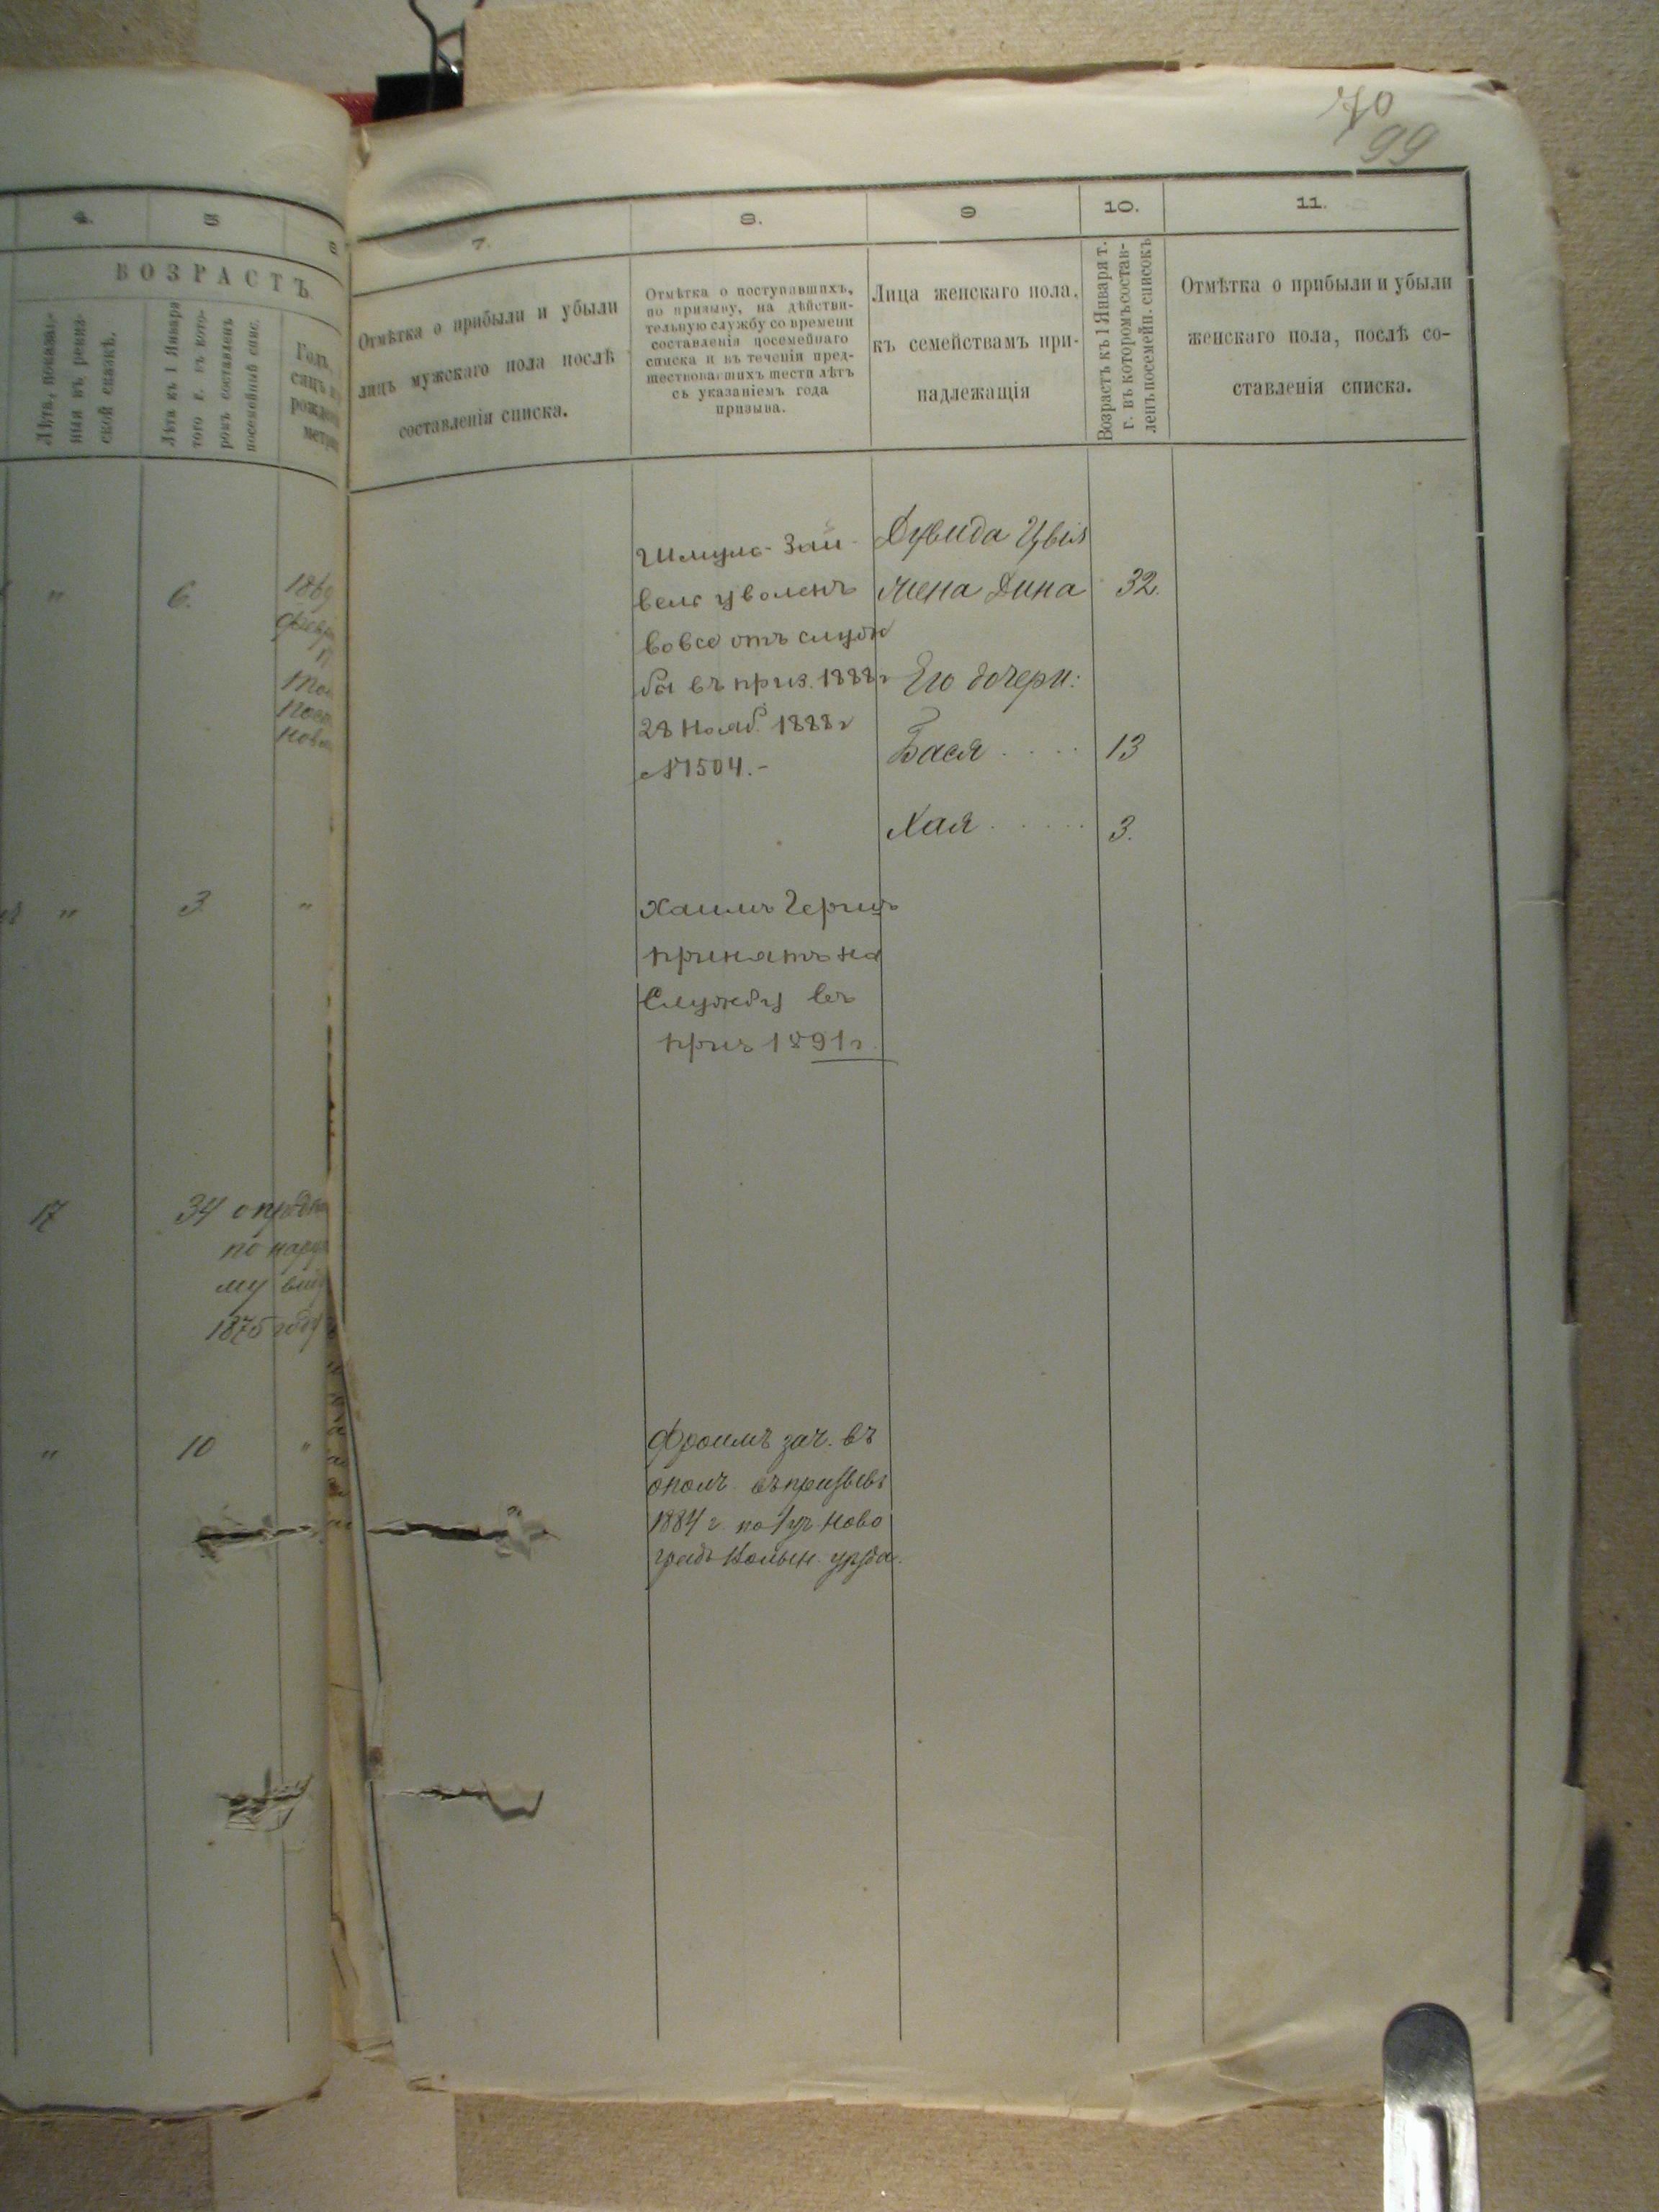 70
99
4.
5
6
7.
8.
9
10.
11.
ВОЗРАСТЪ
Лѣта, показан-
ныя въ ревиз-
ской сказкѣ.
Лѣта къ 1 Января
того г. въ кото-
ромъ составленъ
посемейный спис.
Отмѣтка о прибыли и убыли
лицъ мужскаго пола послѣ
составленія списка.
Отмѣтка о поступавшихъ,
по призыву, на дѣйстви-
тельную службу со времени
составленія посемейнаго
списка и въ теченіи пред-
шествовавшихъ шести лѣтъ
съ указаніемъ года
призыва.
Лица женскаго пола,
къ семействамъ при-
надлежащія
Возрастъ къ 1 Января т.
г. въ которомъ состав-
ленъ посемейн. списокъ
Отмѣтка о прибыли и убыли
женскаго пола, послѣ со-
ставленія списка.
" 6. 1869
Шмуль-Зай-
вель уволенъ
вовсе отъ служ
бы въ приз. 1888 г
28 Нояб. 1888 г
№1504.-
Дувида Цвія
жена Дина 32.
Его дочери:
Бася . . . . 13
Хая . . . . . 3.
" 3 "
Хаимъ Гершъ
принятъ на
Службу въ
приз 1891 г.
17 34
1875 году
" 10 "
Фроимъ зач. въ
ополч. въ призывъ
1884 г. по 1 уч. Ново
градъ Волын. уѣзда.